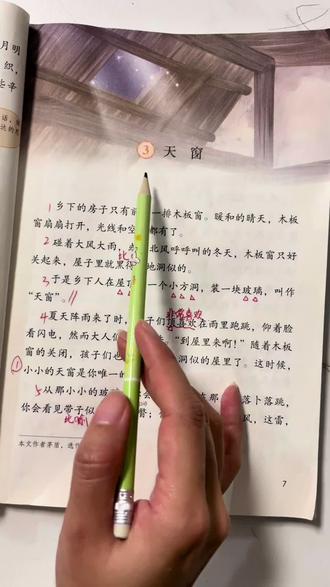 月明
织,
些辛
话,
达的
3 天 窗
1 乡下的房子只有前 一排木板窗。暖和的晴天,木板
窗扇扇打开,光线和空 都有了。
2 碰着大风大雨, 北风呼呼叫的冬天,木板窗只好
关起来,屋子里就黑 地洞似的。
3 于是乡下人在屋 一个小方洞,装一块玻璃,叫作
“天窗”。
非常喜欢
4 夏天阵雨来了时, 子们顶喜欢在雨里跑跳,仰着脸
看闪电,然而大人 “到屋里来啊!”随着木板
窗的关闭,孩子们也 洞似的屋里了。这时候,
① 小小的天窗是你唯一的
5 从那小小的玻 在那 落卜落跳,
你会看见带子似 瞥;你 风,这雷,
本文作者茅盾,选作
7